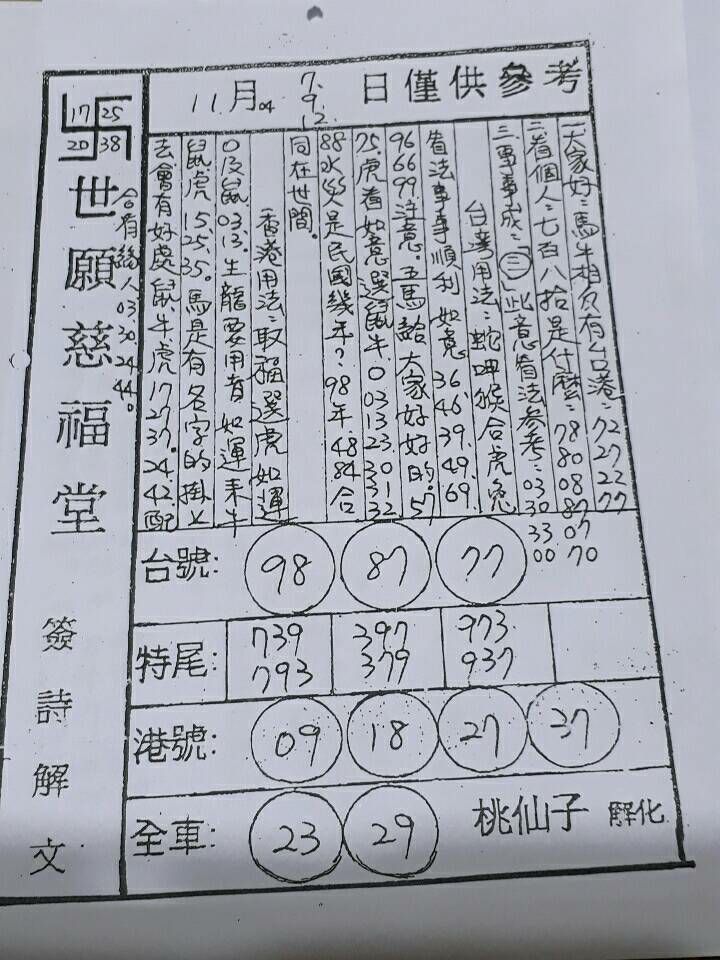 11月04 7. 9. 12. 日僅供參考
17 25
20 38
世願慈福堂
簽詩解文
合有緣人03 30 24 44。
一大家好:馬牛相反有台港:72 27 22 77
二看個人:七百八拾是什麼:78 80 08 87 07 70
三事事成:(三)此意看法參考:03 30 33 00
台灣用法:蛇呷猴合虎兔
看法事事順利如意36.46.39.49.69.
96 66 99注意.五馬說大家好好的:57
75.虎看如意選鼠牛0 03 13 23.01 33 31 32
88水災是民國幾年?98年.48 84合
同在世間。
香港用法:取福選虎如運
0及鼠03.13.生龍要用者如運來牛
鼠虎15.25.35.馬是有名字的掛上
去會有好處鼠牛虎17 27 37.24.42.配
台號: 98 87 77
特尾: 739 397 973
793 379 937
港號: 09 18 27 37
全車: 23 29
桃仙子 解化